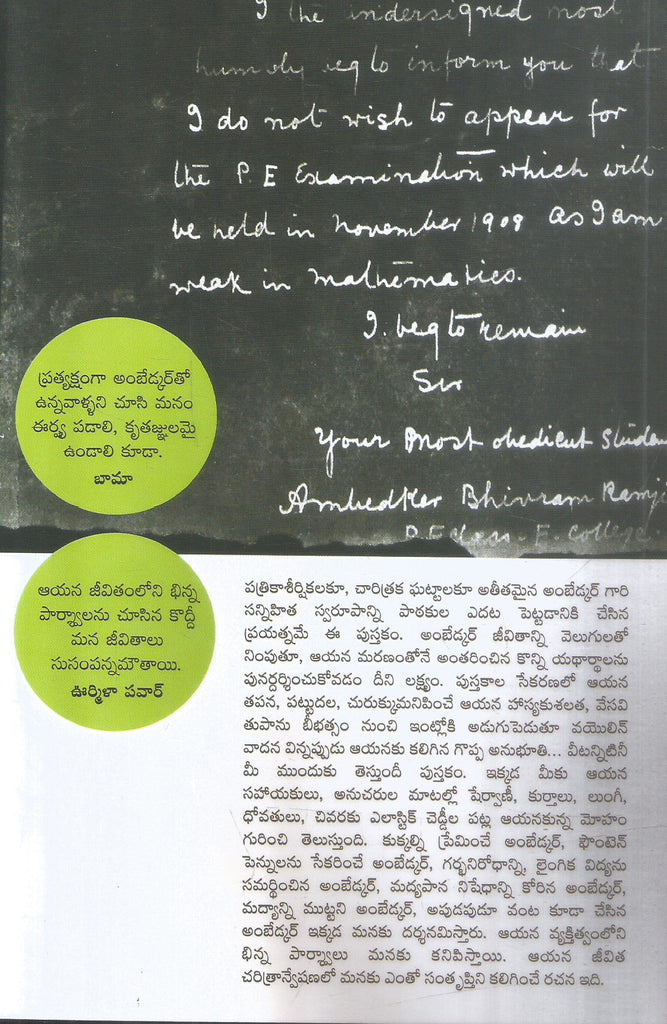 I the undersigned most
humbly beg to inform you that
I do not wish to appear for
the P.E Examination which will
be held in november 1908 as I am
weak in mathematics.
I. beg to remain
Sir
Your most obedient Studen
Ambedkar Bhivram Ramji
P.E class - E. College.
ప్రత్యక్షంగా అంబేడ్కర్‌తో
ఉన్నవాళ్ళని చూసి మనం
ఈర్ష్య పడాలి, కృతజ్ఞులమై
ఉండాలి కూడా.
బామా
ఆయన జీవితంలోని భిన్న
పార్శ్వాలను చూసిన కొద్దీ
మన జీవితాలు
సుసంపన్నమౌతాయి.
ఊర్మిళా పవార్
పత్రికాశీర్షికలకూ, చారిత్రక ఘట్టాలకూ అతీతమైన అంబేడ్కర్ గారి
సన్నిహిత స్వరూపాన్ని పాఠకుల ఎదట పెట్టడానికి చేసిన
ప్రయత్నమే ఈ పుస్తకం. అంబేడ్కర్ జీవితాన్ని వెలుగులతో
నింపుతూ, ఆయన మరణంతోనే అంతరించిన కొన్ని యథార్థాలను
పునర్దర్శించుకోవడం దీని లక్ష్యం. పుస్తకాల సేకరణలో ఆయన
తపన, పట్టుదల, చురుక్కుమనిపించే ఆయన హాస్యకుశలత, వేసవి
తుపాను బీభత్సం నుంచి ఇంట్లోకి అడుగుపెడుతూ వయొలిన్
వాదన విన్నప్పుడు ఆయనకు కలిగిన గొప్ప అనుభూతి... వీటన్నిటినీ
మీ ముందుకు తెస్తుందీ పుస్తకం. ఇక్కడ మీకు ఆయన
సహాయకులు, అనుచరుల మాటల్లో షేర్వాణీ, కుర్తాలు, లుంగీ,
ధోవతులు, చివరకు ఎలాస్టిక్ చెడ్డీల పట్ల ఆయనకున్న మోహం
గురించి తెలుస్తుంది. కుక్కల్ని ప్రేమించే అంబేడ్కర్, ఫౌంటెన్
పెన్నులను సేకరించే అంబేడ్కర్, గర్భనిరోధాన్ని, లైంగిక విద్యను
సమర్థించిన అంబేడ్కర్, మద్యపాన నిషేధాన్ని కోరిన అంబేడ్కర్,
మద్యాన్ని ముట్టని అంబేడ్కర్, అపుడపుడూ వంట కూడా చేసిన
అంబేడ్కర్ ఇక్కడ మనకు దర్శనమిస్తారు. ఆయన వ్యక్తిత్వంలోని
భిన్న పార్శ్వాలు మనకు కనిపిస్తాయి. ఆయన జీవిత
చరిత్రాన్వేషణలో మనకు ఎంతో సంతృప్తిని కలిగించే రచన ఇది.